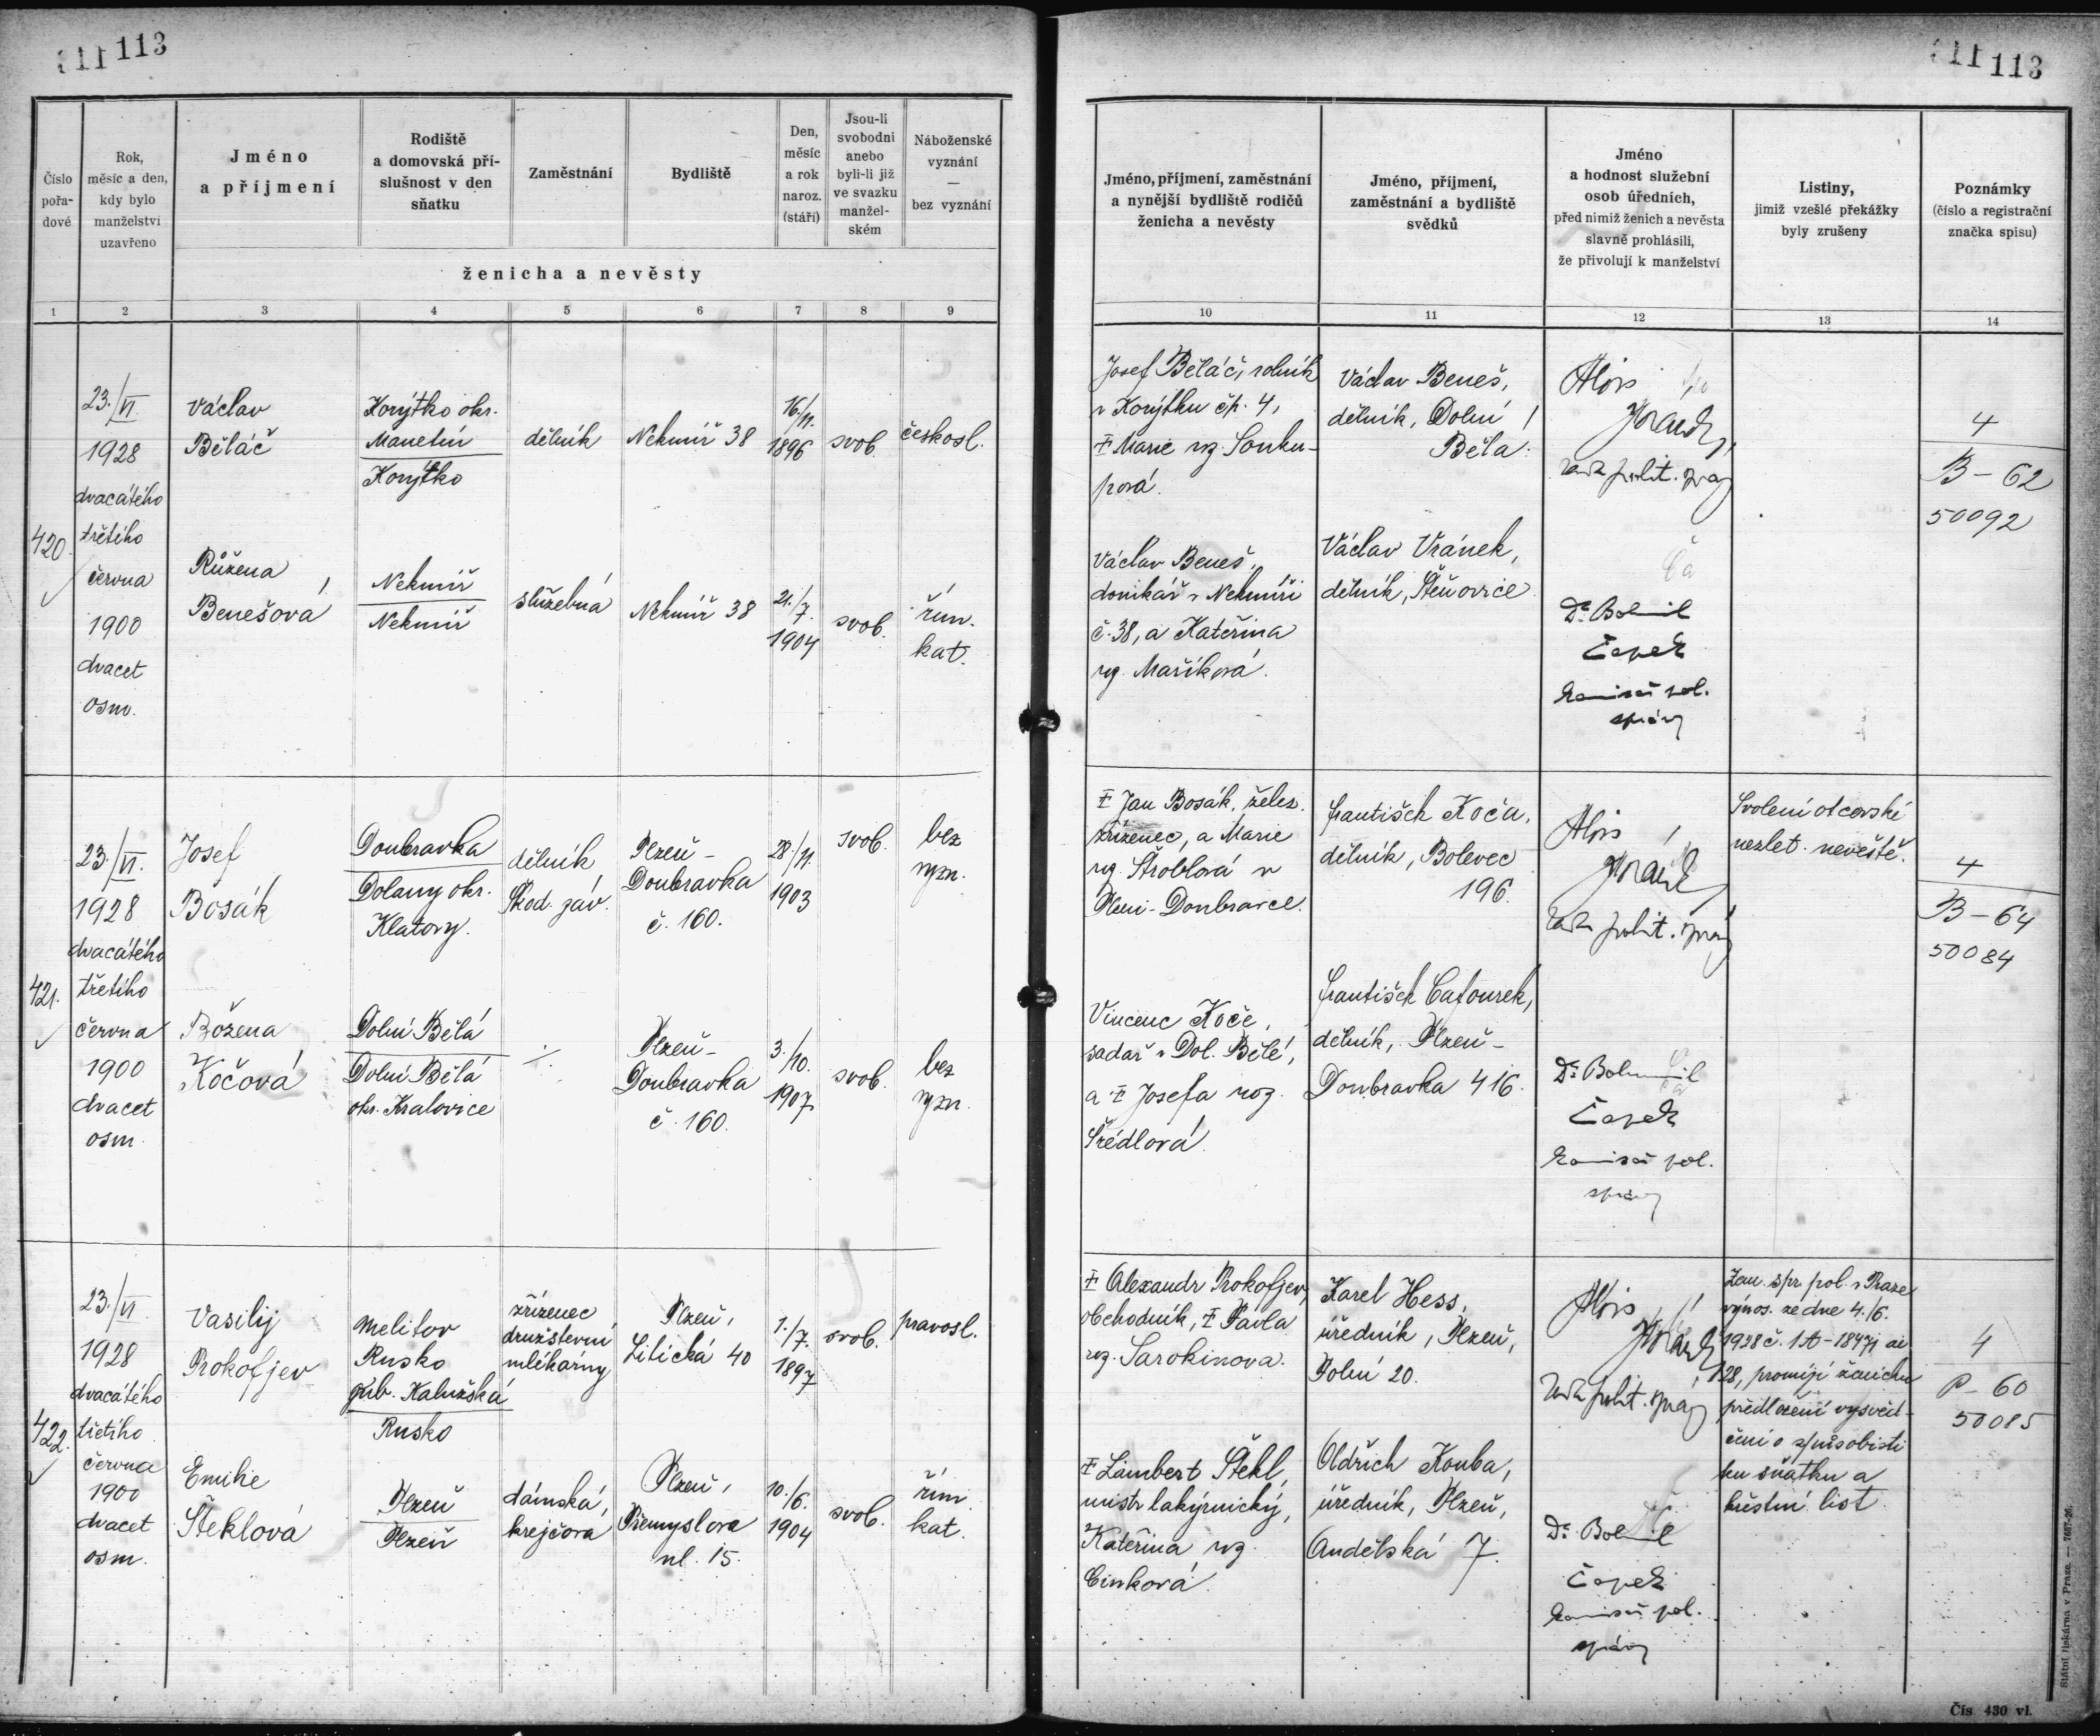 111 113
111 113
Číslo pořa- dové
Rok, měsíc a den, kdy bylo manželství uzavřeno
Jméno a příjmení
Rodiště a domovská pří- slušnost v den sňatku
Zaměstnání
Bydliště
Den, měsíc a rok naroz. (stáří)
Jsou-li svobodni anebo byli-li již ve svazku manžel- ském
Náboženské vyznání — bez vyznání
ženicha a nevěsty
Jméno, příjmení, zaměstnání a nynější bydliště rodičů ženicha a nevěsty
Jméno, příjmení, zaměstnání a bydliště svědků
Jméno a hodnost služební osob úředních, před nimiž ženich a nevěsta slavně prohlásili, že přivolují k manželství
Listiny, jimiž vzešlé překážky byly zrušeny
Poznámky (číslo a registrační značka spisu)
1 2 3 4 5 6 7 8 9 10 11 12 13 14
420.
23./VI.
1928
dvacátého
třetího
června
1900
dvacet
osm.
Václav
Běláč
Korýtko okr.
Manetín
Korýtko
dělník
Nekmíř 38
16./11.
1896
svob.
českosl.
Růžena
Benešová
Nekmíř
Nekmíř
služebná
Nekmíř 38
21./7.
1904
svob.
řím.
kat.
Josef Běláč, rolník
v Korýtku čp. 4,
Marie roz. Souku-
pová.
Václav Beneš,
domkář v Nekmíři
č. 38, a Kateřina
roz. Maříková.
Václav Beneš,
dělník, Dolní
Bělá.
Václav Vránek,
dělník, Štěnovice
Alois
rada polit. správy
Dr. Bohumil
Čapek
komisař pol.
správy
4
B - 62
50092
421.
23./VI.
1928
dvacátého
třetího
června
1900
dvacet
osm.
Josef
Bosák
Doubravka
Dolany okr.
Klatovy.
dělník
Škod. záv.
Plzeň -
Doubravka
č. 160.
28./11.
1903
svob.
bez
vyzn.
Božena
Kočová
Dolní Bělá
Dolní Bělá
okr. Kralovice
Plzeň -
Doubravka
č. 160.
3./10.
1907
svob.
bez
vyzn.
Jan Bosák, želez.
zřízenec, a Marie
roz. Štroblová v
Plzni - Doubravce.
Vincenc Koče,
sadař v Dol. Bělé,
a Josefa roz.
Šrédlová.
František Koča,
dělník, Bolevec
196.
František Cafourek,
dělník, Plzeň -
Doubravka 416.
Alois
rada polit. správy
Dr. Bohumil
Čapek
komisař pol.
správy
Svolení otcovské
nezlet. nevěstě.
4
B - 64
50084
422.
23./VI.
1928
dvacátého
třetího
června
1900
dvacet
osm.
Vasilij
Prokofjev
Melitov
Rusko
gub. Kalužská
Rusko
zřízenec
družstevní
mlékárny
Plzeň,
Litická 40
1./7.
1897
svob.
pravosl.
Emilie
Šteklová
Plzeň
Plzeň
dámská
krejčová
Plzeň,
Přemyslova
ul. 15.
10./6.
1904
svob.
řím.
kat.
Alexandr Prokofjev,
obchodník, Pavla
roz. Sarokinova.
Lambert Štekl,
mistr lakýrnický,
Kateřina roz.
Cinková.
Karel Hess,
úředník, Plzeň,
Polní 20.
Oldřich Kouba,
úředník, Plzeň,
Andělská 7.
Alois
rada polit. správy
Dr. Bohumil
Čapek
komisař pol.
správy
Zem. spr. pol. v Praze
výnos. ze dne 4./6.
1928 č.
28, promíjí ženichu
předložení vysvěd-
čení o způsobilosti
ku sňatku a
křestní list.
4
P - 60
50085
Státní tiskárna v Praze. — 7687-26.
Čís. 430 vl.